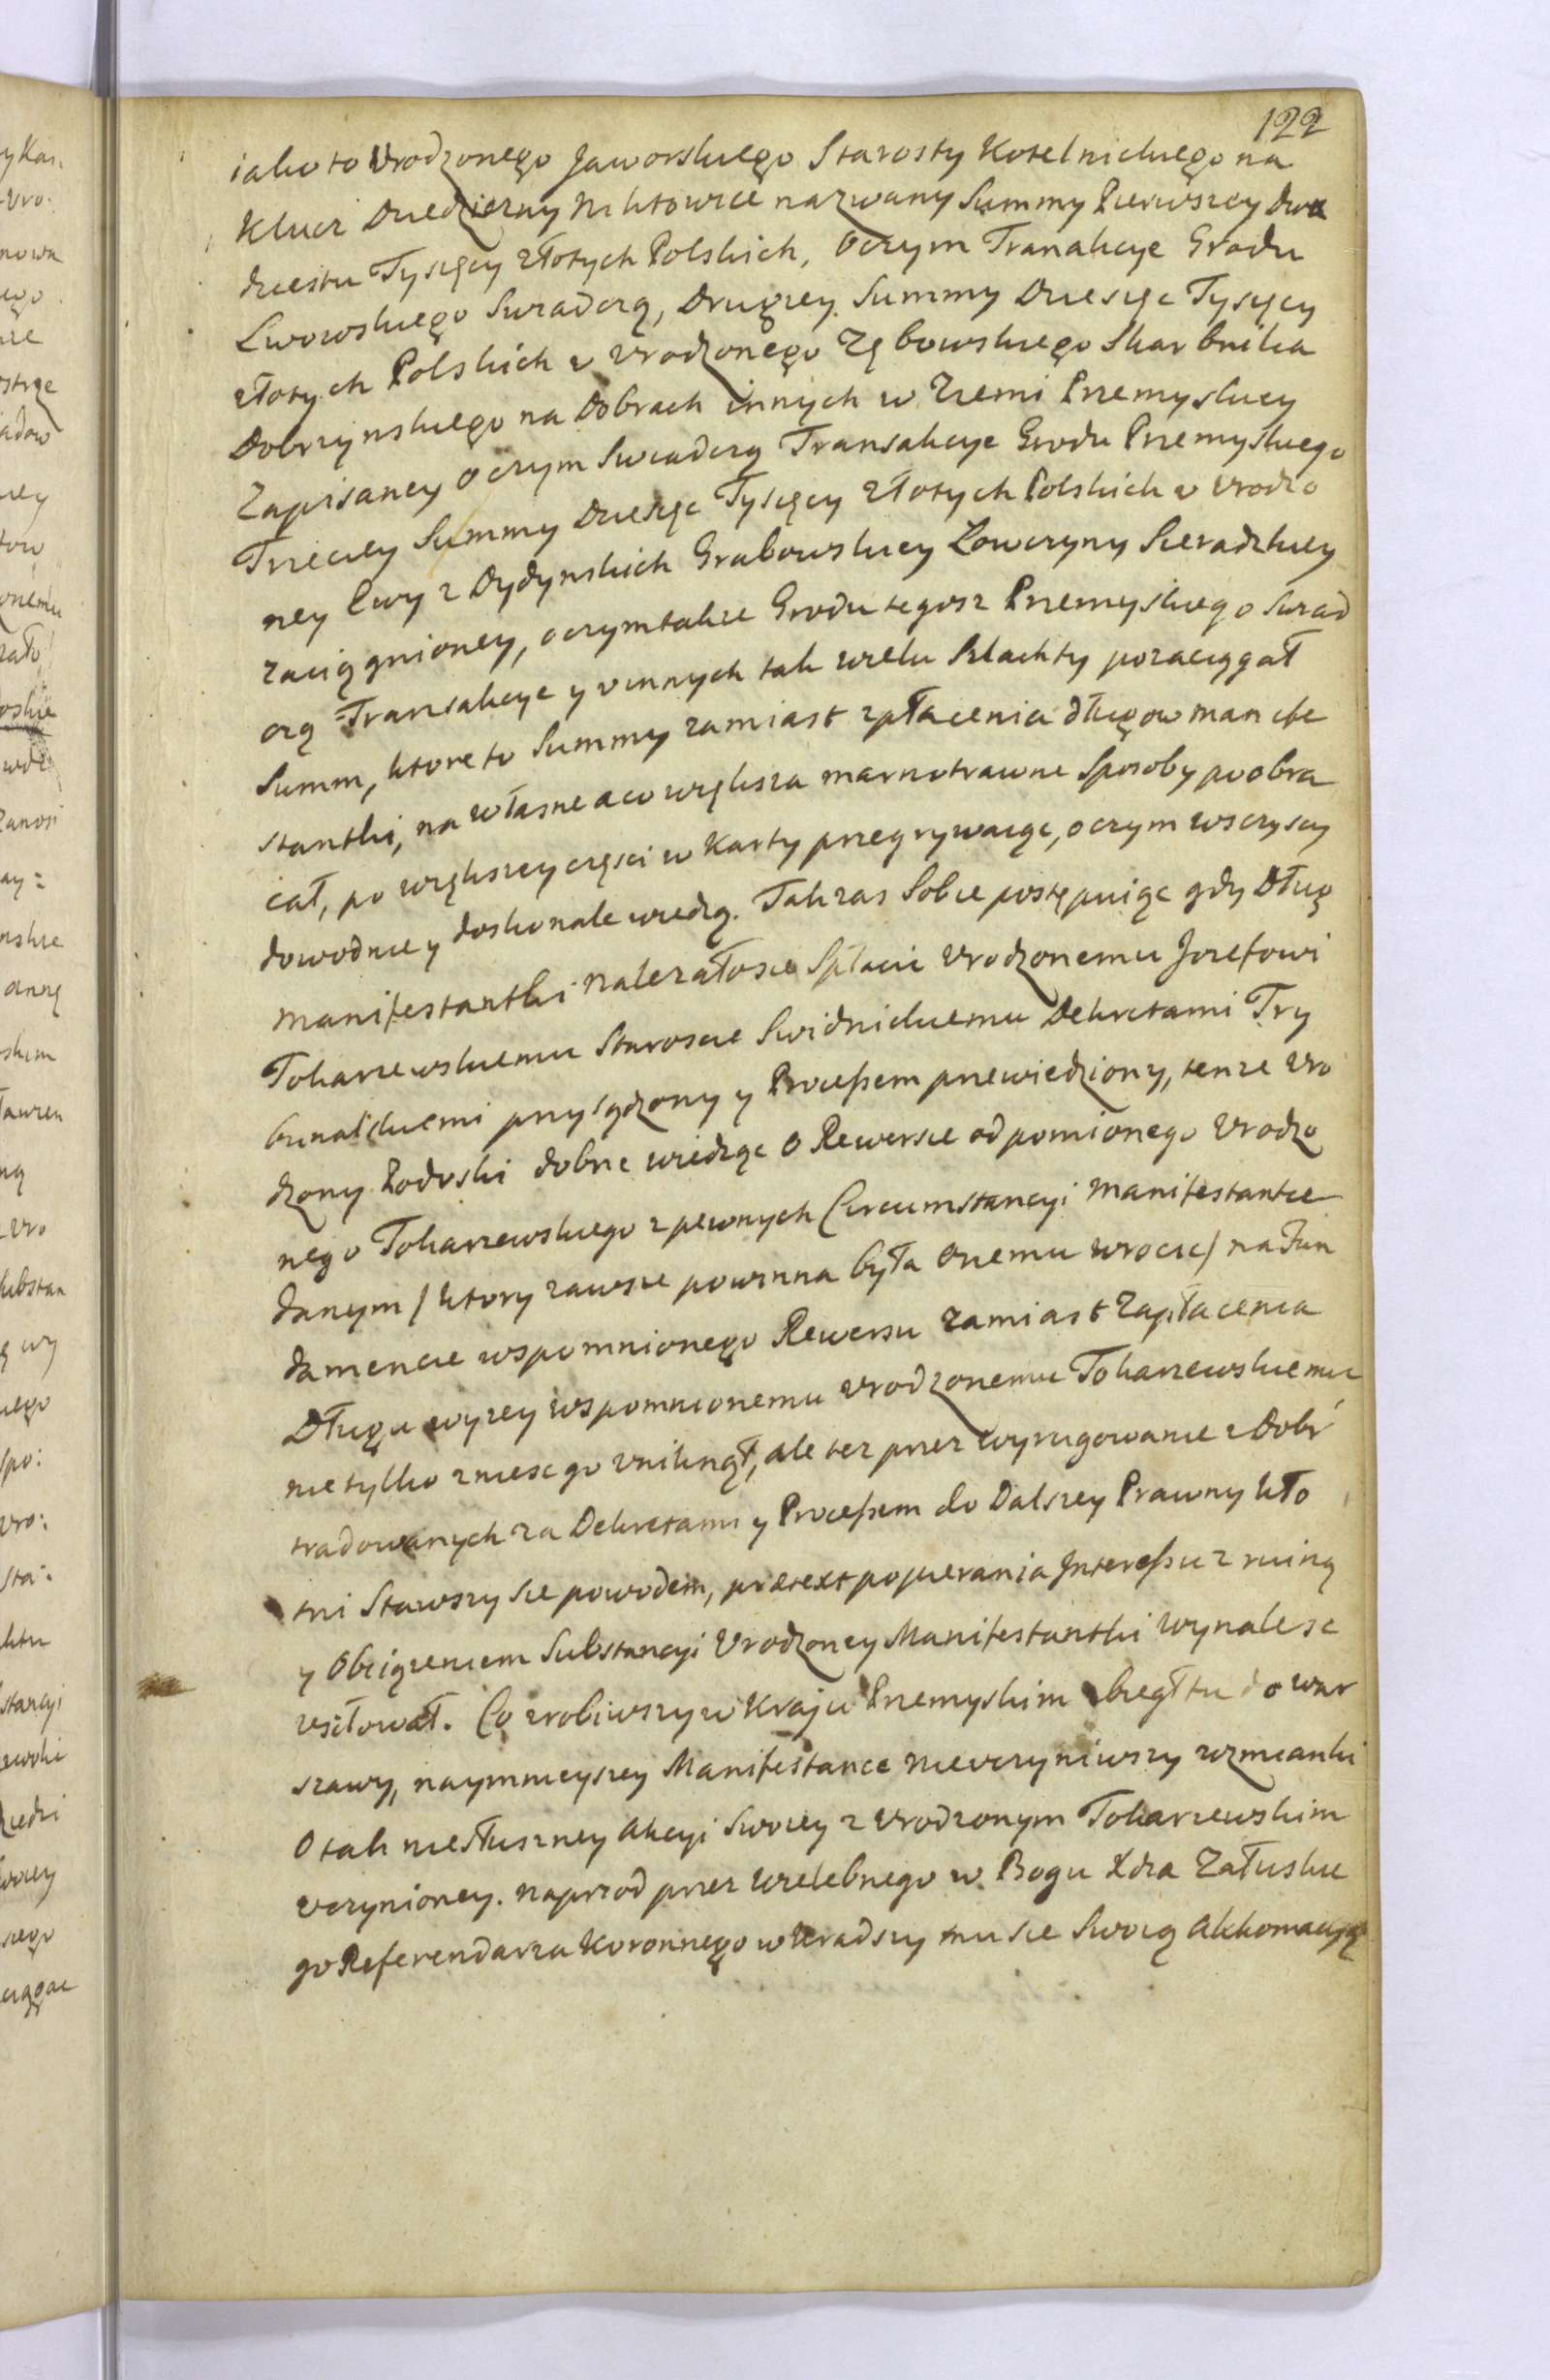 122
iako to Urodzonego Jaworskiego Starosty Kotelnickiego na
Klucz Dziedziczny Niktowice nazwany Summy Pierwszey dwu
dziestu Tysięcy złotych Polskich, oczym Tranakcye Grodu
Lwowskiego Swiadczą, Drugiey Summy Dziesięc Tysięcy
złotych Polskich u Urodzonego Zębowskiego Skarbnika
Dobrzynskiego na Dobrach innych w Ziemi Przemyskiey
Zapisaney o czym Swiadczą Transakcye Grodu Przemyskiego
Trzeciey Summy Dziesięc Tysięcy Złotych Polskich u Urodzo
ney Ewy z Dydynskich Grabowskiey Łowczyny Sieradzkiey
zaciągnioney, o czym takze Grodu tegosz Przemyskiego Swiad
czą Transakcye y u innych tak wielu Szlachty pozaciągał
Summ, ktore to Summy zamiast zpłacenia długow manife
stantki, na własne a co większa marnotrawne Sposoby poobra
cał, po większey części w Karty przegrywaiąc, o czym wszyscy
dowodnie y doskonale wiedzą. Tak zas Sobie postępuiąc gdy Dług
manifestantki nalezałosie Spłacic Urodzonemu Jozefowi
Tokarzewskiemu Staroscie Swidnickiemu Dekretami Try
bunalskiemi przysądzony y Processem przewiedziony, tenze Uro
dzony Łodoski dobrze wiedząc o Rewersie odpomionego Urodzo
nego Tokarzewskiego z pewnych Circumstancyi manifestantce
danym / ktory zawsze powinna była onemu wrocic / na Fun
damencie wspomnionego Rewersu zamiast Zapłacenia
Długu wyzey wspomnionemu Urodzonemu Tokarzewskiemu
nietylko zniesc go uniknął, ale tez przez wyrugowanie z Dobr
tradowanych za Dekretami y Processem do Dalszey Prawny kło
tni Stawszy sie powodem, prætext popierania Interessu z ruiną
y Obciązeniem Substancyi Urodzoney Manifestantki wynalesc
usiłował. Co zrobiwszy w Kraju Przemyskim biegł tu do War
szawy, naymnieyszey Manifestance nieuczyniwszy wzmianki
O tak niesłuszney Akcyi Swoiey z Urodzonym Tokarzewskim
uczynioney. naprzod przez Wielebnego w Bogu Xdza Załuskie
go Referendarza Koronnego wkradszy mu sie Swoią Akkomacyą